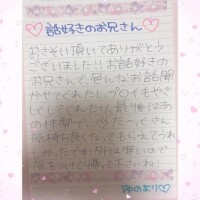 話好きのお兄さん
おさそい頂いてありがとう
ございました!!お話好きの
お兄さんで、色んなお話聞
かせてくれたし、プレイもやさ
しくしてくれたり、最後はあ
の体勢で…たーっくさん
気持ち良くなってもらえてうれ
しかったです。外は寒いので
気をつけて帰って下さいね!
より♡